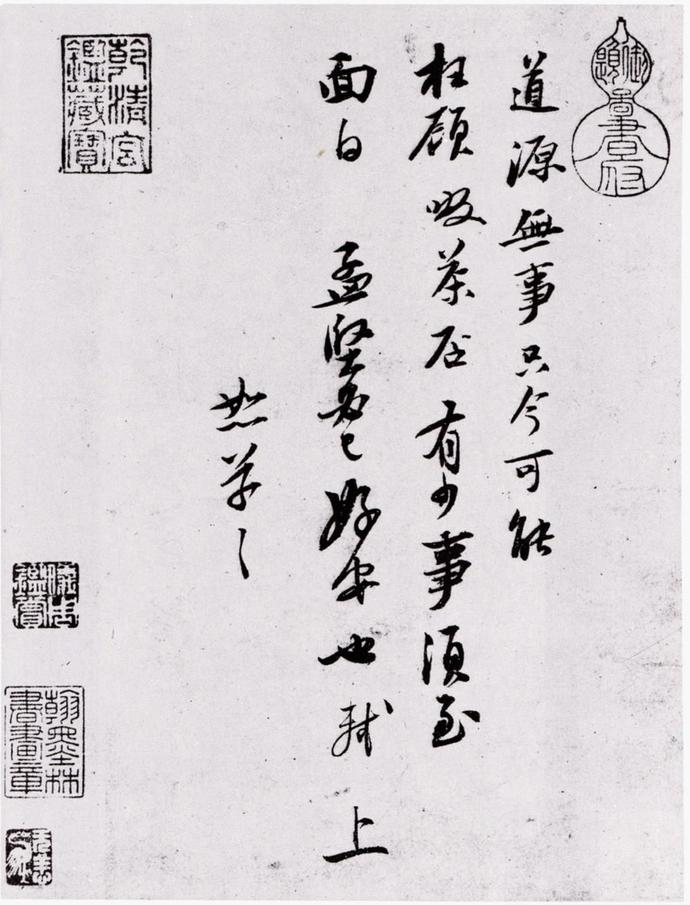 道源無事只今可能
枉顧啜茶否有少事須至
面白孟堅必已好安也軾上
恕草草
乾清宮
鑑藏寶
翰墨林
書畫章